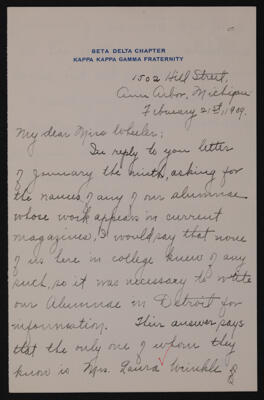 BETA DELTA CHAPTER
KAPPA KAPPA GAMMA FRATERNITY
1502 Hill Street,
Ann Arbor, Michigan
February 21st, 1909.
My dear Miss Wheeler;
In reply to you letter
of January the ninth, asking for
the names of any of our alumnae
whose work appears in current
magazines, I would say that none
of us here in college knew of any
such, so it was necessary to write
our Alumnae in Detroit for
information. Their answer says
that the only one of whom they
know is Mrs. Laura Wrinkle